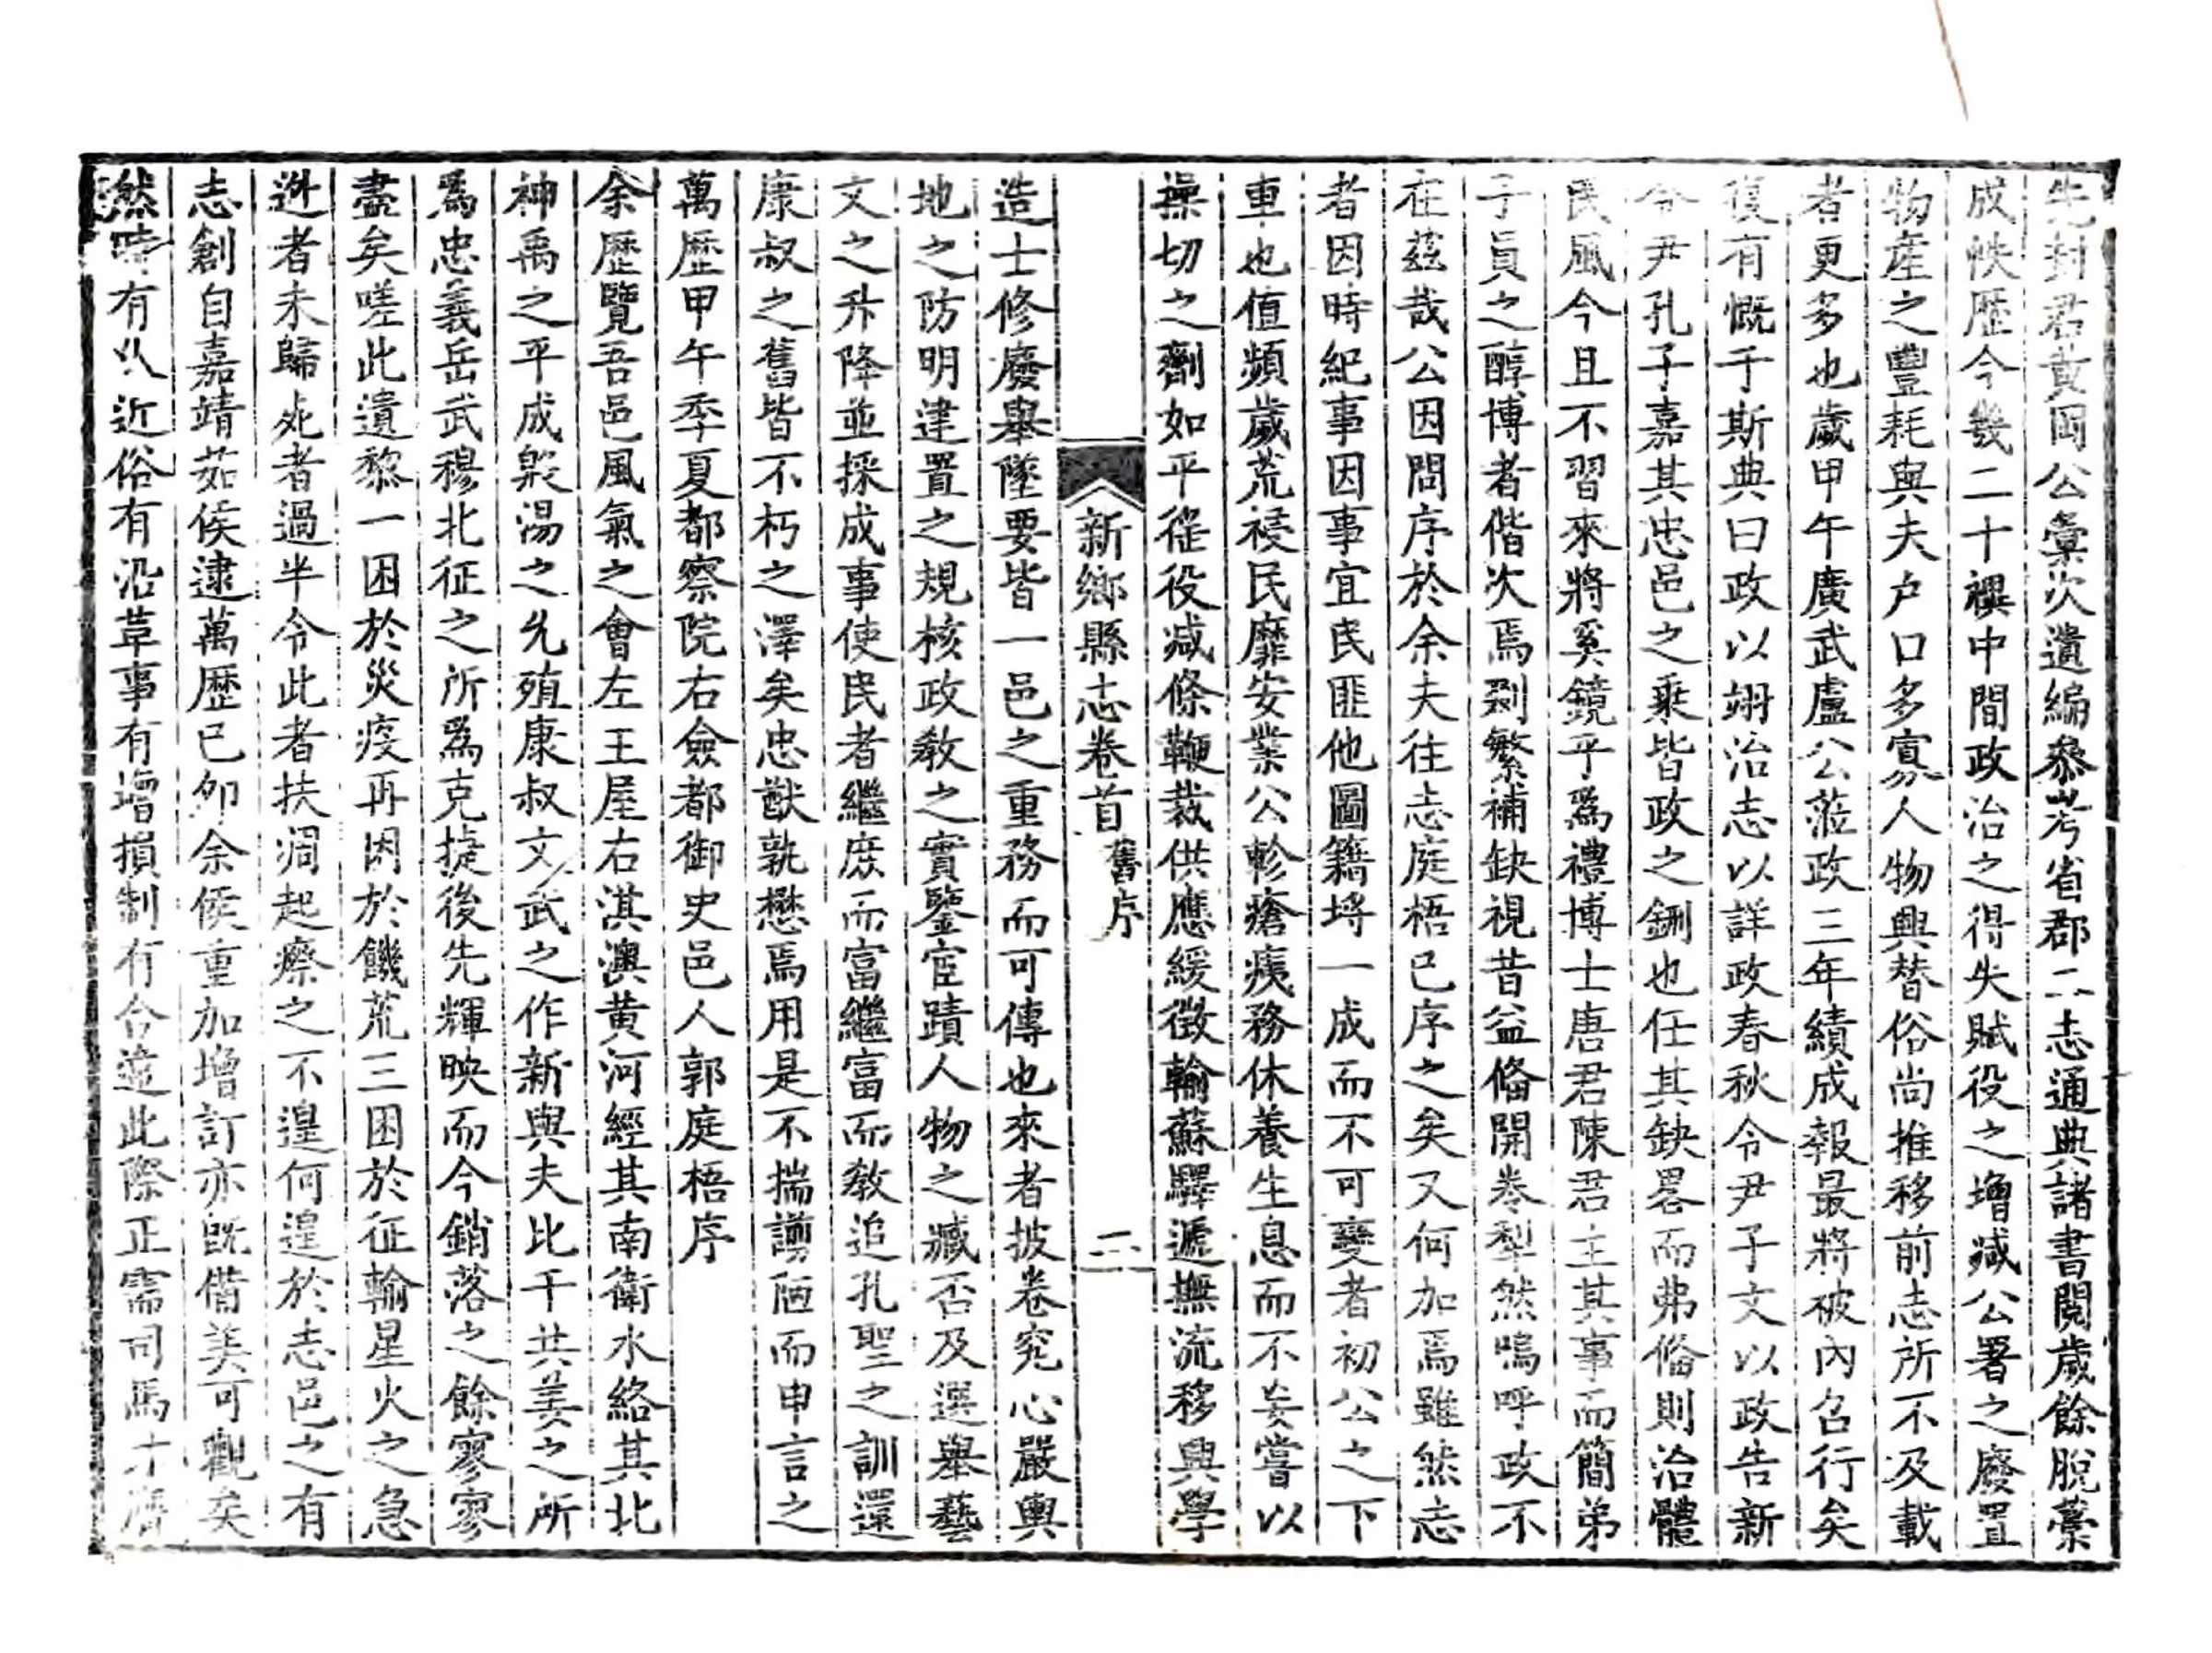 先對君黃岡公彙次遺編叅考省郡二志通典諸書閱歲餘脫藁
成帙歷今幾二十禩中間政治之得失賦役之增減公署之廢置
物產之豐耗與夫户口多寡人物興替俗尚推移前志所不及載
者更多也歲甲午廣武盧公蒞政三年績成報最將被內召行矣
復有慨于斯典曰政以翊治志以詳政春秋令尹子文以政告新
令尹孔子嘉其忠邑之乘皆政之鉶也任其缺畧而弗脩則治體
民風今且不習來將奚鏡乎爲禮博士唐君陳君主其事而簡弟
子員之醇博者偕次焉剗繁補缺視昔益脩開卷犁然嗚呼政不
在兹哉公因問序於余夫往志庭梧已序之矣又何加焉雖然志
者因時紀事因事宜民匪他圖籍埒一成而不可變者初公之下
車也值頻歲荒祲民靡安業公軫瘡痍務休養生息而不妄嘗以
操切之劑如平徭役減條鞭裁供應緩徴輸蘇驛遞撫流移興學
新鄉縣志卷首 舊序 二
造士修廢舉墜要皆一邑之重務而可傳也來者披卷究心嚴輿
地之防明建置之規核政敎之實鑒宦蹟人物之臧否及選舉藝
文之升降並採成事使民者繼庶而富繼富而敎追孔聖之訓還
康叔之舊皆不朽之澤矣忠猷孰懋焉用是不揣謭陋而申言之
萬歷甲午季夏都察院右僉都御史邑人郭庭梧序
余歷覽吾邑風氣之會左王屋右淇澳黄河經其南衛水絡其北
神禹之平成㷼湯之允殖康叔文武之作新與夫比干共姜之所
爲忠義岳武穆北征之所爲克㨗後先輝映而今銷落之餘寥寥
盡矣嗟此遺黎一困於災疫再困於饑荒三困於征輸星火之急
迯者未歸死者過半令此者扶凋起瘵之不遑何遑於志邑之有
志創自嘉靖茹侯逮萬歷已夘余侯重加增訂亦旣備美可觀矣
然時有久近俗有沿革事有增損制有合違此際正需司馬才濟